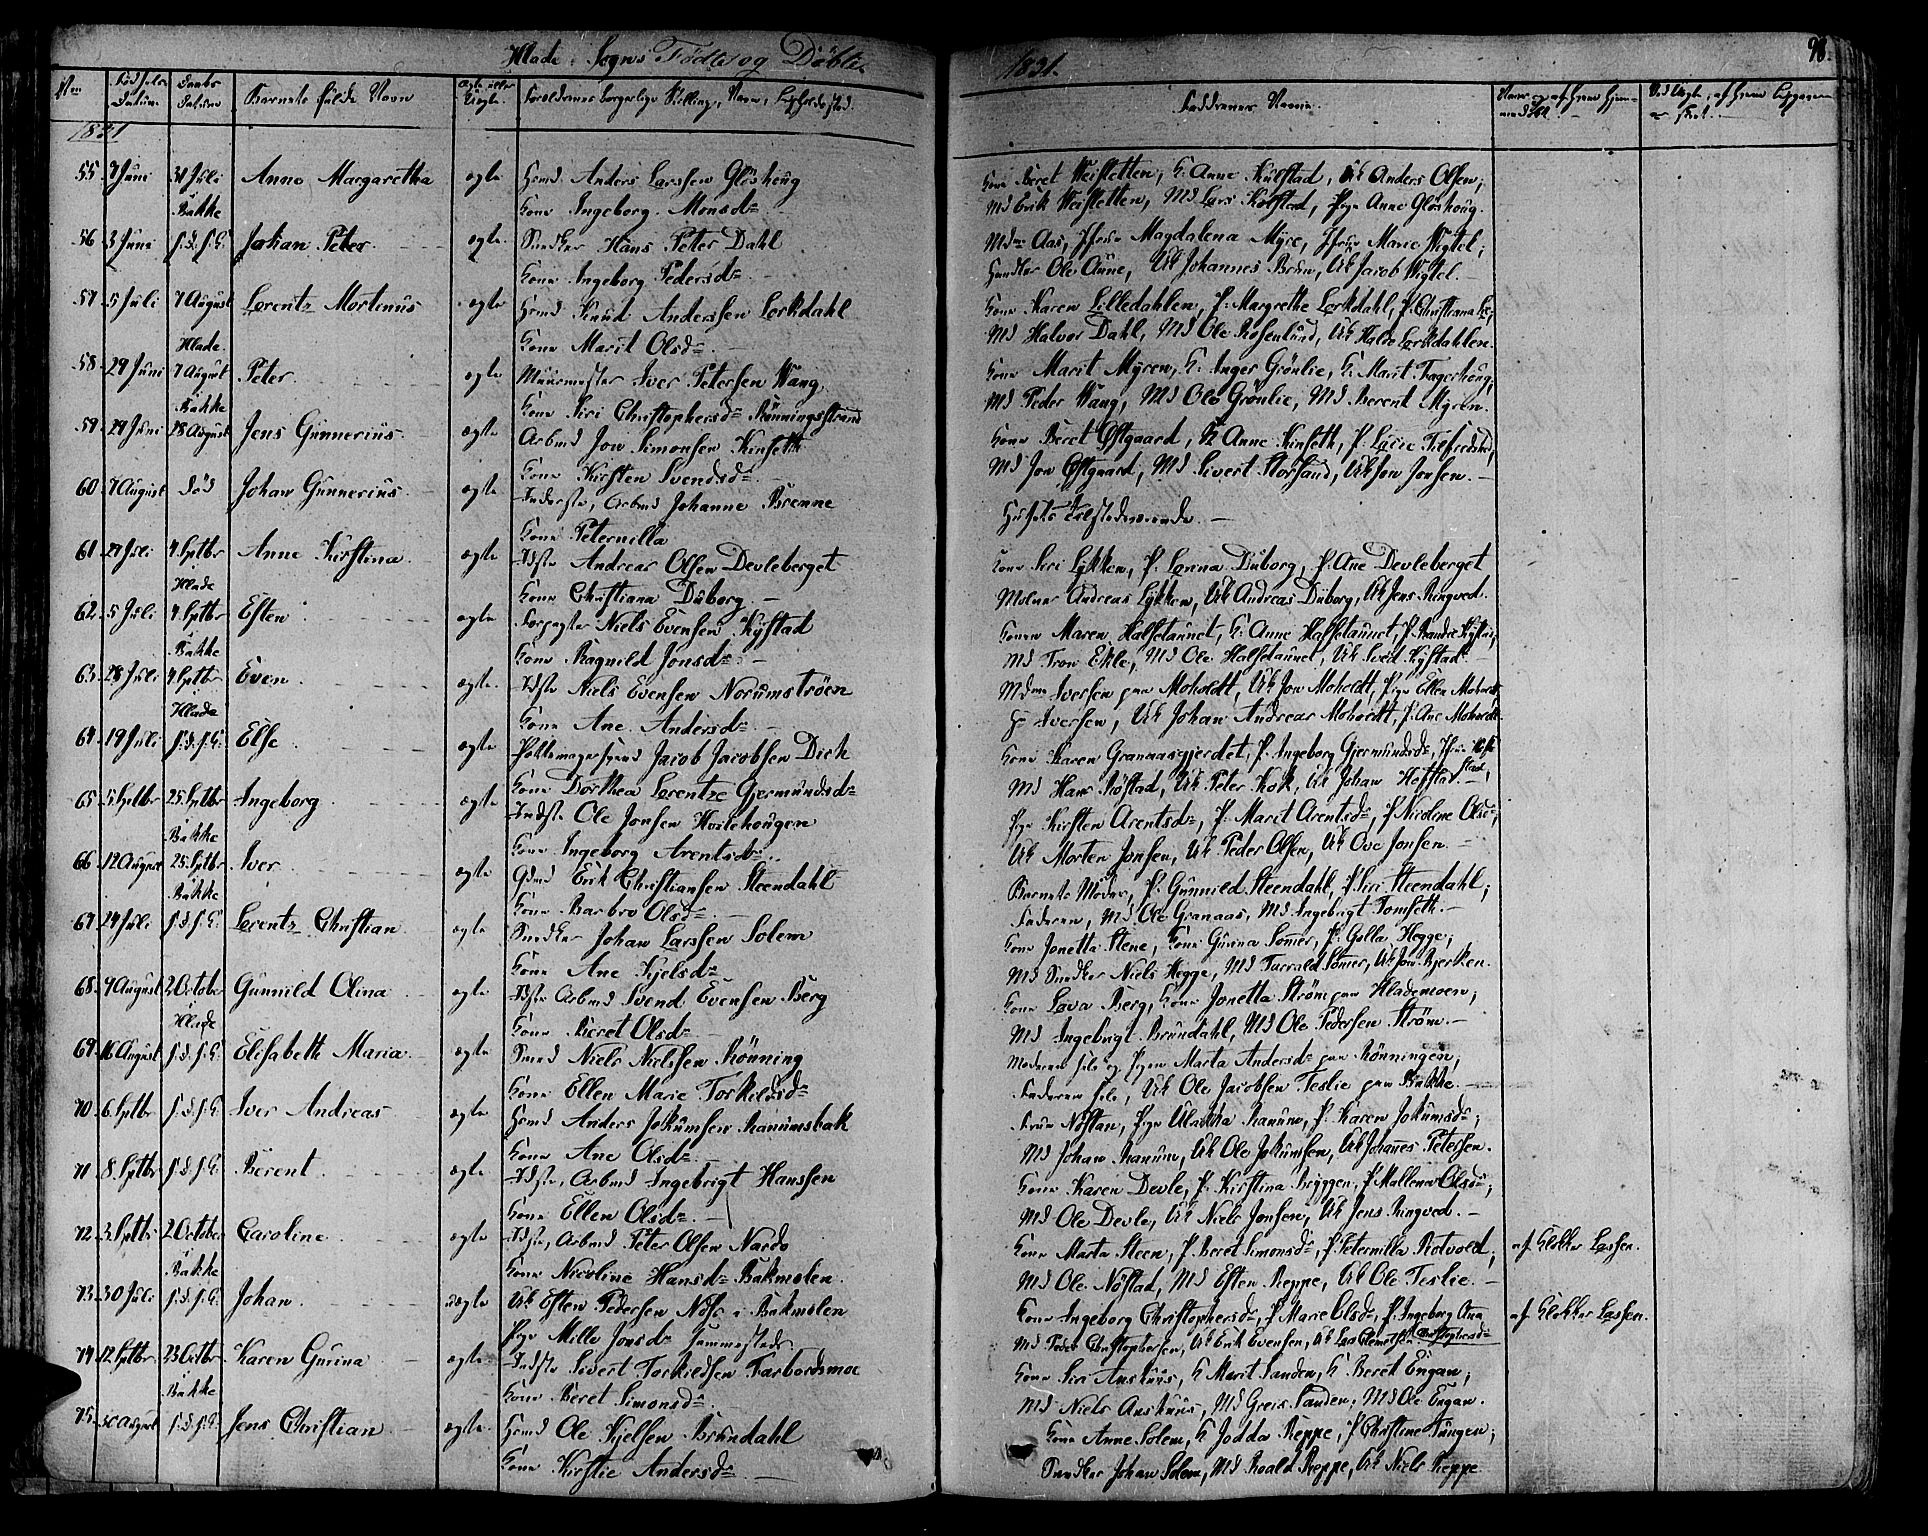 Hlade Sogns Fødte og Døbte
1831.
98.
No
Fødsels Datum
Daabs Datum
Barnets fulde Navn
Ægte eller Uægte.
Forældrenes borgerlige Stilling, Navn,
Faddernes Navne.
1831
55. 7 Juni 31 Juli Anne Margaretha ægte Hmd Anders Larssen Gløshoug
Bakke Kone Ingeborg Monsd.
Kone Beret Weisletten, K. Anne Kulstad, Uk Anders Olsen;
Md Erik Weisletten, Md Lars Kolstad, Pige Anne Gløshoug.
56 3 Juni s.d. s.K. Johan Peter. ægte. Snedker Hans Peter Dahl
Kone Ingeborg Pedersd.
Md Aas, Jfru Magdalena Myre, Jfru Marie Wigtel;
Snedker Ole Aune, Uk Johannes Brun, Uk Jacob Wigtel.
57. 5 Juli 7 August Lorentz Mortinus ægte Hmd Knud Anderssen Lerkdahl
Hlade Kone Marit Olsd.
Kone Karen Lilledahlen, P. Margrethe Lerkdahl, P. Christiana
Md Halvor Dahl, Md Ole Rosenlund, Uk Halvor Lerkdahlen.
58. 29 Juni 7 August Peter. ægte Muurmester Iver Petersen Wang
Bakke Kone Siri Christophersd. Rønningsstrand
Kone Marit Myren, K. Inger Grønlie, K. Marit Fagerhoug,
Md Peder Wang, Md Ole Grønlie, Md Berent Myren.
59. 29 Juni 28 August Jens Gunnerius. ægte Arbmd Jon Simonsen Kinseth
Kone Kirsten Svendsd.
Kone Beret Østgaard, K. Anne Kinseth, P. Lucie
Md Jon Østgaard, Md Sivert Storsand, Uk Jon Jonsen.
60 7 August død Johan Gunnerius. ægte Inderste, Arbmd Johanne Brenne
Kone Peternilla
Husets Tilstedeværende.
61 27 Juli 4 Septbr Anne Kirstina. ægte Idste Andreas Olsen Devleberget
Hlade Kone Christiana Duborg.
Kone Siri Lykken, P. Lenna Duborg, P. Ane Devleberget
Molner Andreas Lykken, Uk Andreas Duborg, Uk Jens Ringved.
62. 5 Juli 4 Septbr Esten ægte Forpagter Niels Evensen Kystad
Bakke Kone Ragnild Jonsd.
Konen Maren Halsetaunet, K. Anne Halsetaunet, P. Kystad,
Md Tron Ekle, Md Ole Halsetaunet, Uk Kystad.
63. 28 Juli 4 Septbr Even ægte. Idste Niels Evensen Norumstrøen
Hlade Kone Ane Andersd.
Mdme Iversen paa Moholdt, Uk Jon Moholdt, Pige Ellen Moholdt,
Hr Iversen, Uk Johan Andreas Moholdt, P. Ane Moholdt.
64. 19 Juli s.d. s.K. Else ægte Pottemagersvend Jacob Jacobsen Dich
Kone Dorthea Lorentze Gjermundsd.
Kone Karen Granaasgjerdet, P. Ingeborg Gjermundsd.,
Md Hans Røstad, Uk Peter Kok, Uk Johan
65 5 Septbr 25 Septbr Ingeborg ægte Indste Ole Jonsen Hoslehougen
Bakke Kone Ingeborg Arentsd.
Pige Kirsten Arentsd., P. Marit Arentsd., P. Nicoline Olsd.;
Uk Morten Jonsen, Uk Peder Olsen, Uk Ove Jonsen.
66 12 August 25 Septbr Iver ægte Gmd Erik Christiansen Steendahl
Bakke Kone Barbro Olsd.
Barnets Moder, P. Gunnild Steendahl, P. Siri Steendahl;
Faderen, Md Ole Granaas, Md Ingebrigt Tomseth.
67 24 Juli s.d. s.K. Lorentz Christian ægte Snedker Johan Larssen Solem
Kone Ane Kjelsd.
Kone Jonetta Stene, Kone Gurina Sømer, P. Golla Hegge;
Md Snedker Niels Hegge, Md Farrald Sømer, Uk Jon Bjerken.
68. 9 August 2 October Gunnild Olina ægte Idste Arbmd Svend Evensen Berg
Hlade Kone Beret Olsd.
Kone Lava Berg, Kone Jonetta Strøm paa Hlademoen;
Md Ingebrigt Brundahl, Md Ole Pedersen Strøm.
69. 16 August s.d. s.K. Elisabeth Maria ægte Smed Niels Nielsen Rønning
Kone Ellen Marie Torkildsd.
Moderen selv og Pigen Marta Andersd. paa Rønningen;
Faderen selv, Uk Ole Jacobsen Teslie paa Bakke.
70 6 Septbr s.d. s.K. Iver Andreas ægte Hmd Anders Jokumsen Ranumsbak
Kone Ane Olsd.
Fruen Nøstan, Pige Ranum, P. Karen Jokumsd.;
Md Johan Ranum, Uk Ole Jokumsen, Uk Johanes Petersen.
71 8 Septbr s.d. s.K. Berent ægte Idste, Arbmd Ingebrigt Hanssen
Kone Ellen Olsd.
Kone Karen Devle, P. Kirstina Bryggen, P. Mallena Olsd.;
Md Ole Devle, Uk Niels Jonsen, Uk Jens Ringved.
72. 3 Septbr 2 October Caroline ægte Idste, Arbmd Peter Olsen Nardo
Bakke Kone Nicoline Hansd. Bakmølen.
Kone Marta Steen, P. Beret Simonsd., P. Peternilla Rotvold; af Klokker Lassen.
Md Ole Nøstad, Md Esten Reppe, Uk Ole Teslie.
73. 30 Juli s.d. s.K. Johan uægte Uk Esten Pedersen Næss i Bakmølen
Pige Mille Jonsd. sammesteds
Kone Ingeborg Christophersd., P. Marie Olsd., P. Ingeborg Ana af Klokker Lassen.
Md Peder Christophersen, Uk Erik Evensen, Uk Lars Christophersd.
74 12 Septbr. 23 Octbr Karen Gurina ægte Indste Sivert Torkildsen Farbordsmoe
Bakke Kone Beret Simonsd.
Kone Siri Anshuus, K. Marit Sanden, K. Beret Engan;
Md Niels Anshuus, Md Greis Sanden, Md Ole Engan.
75. 30 August s.d. s.K. Jens Christian ægte Hmd Ole Kjelsen Brundahl
Kone Kirstie Andersd.
Kone Anne Solem, K. Jodda Reppe, P. Christine Tungen;
Snedker Johan Solem, Md Roald Reppe, Uk Niels Reppe